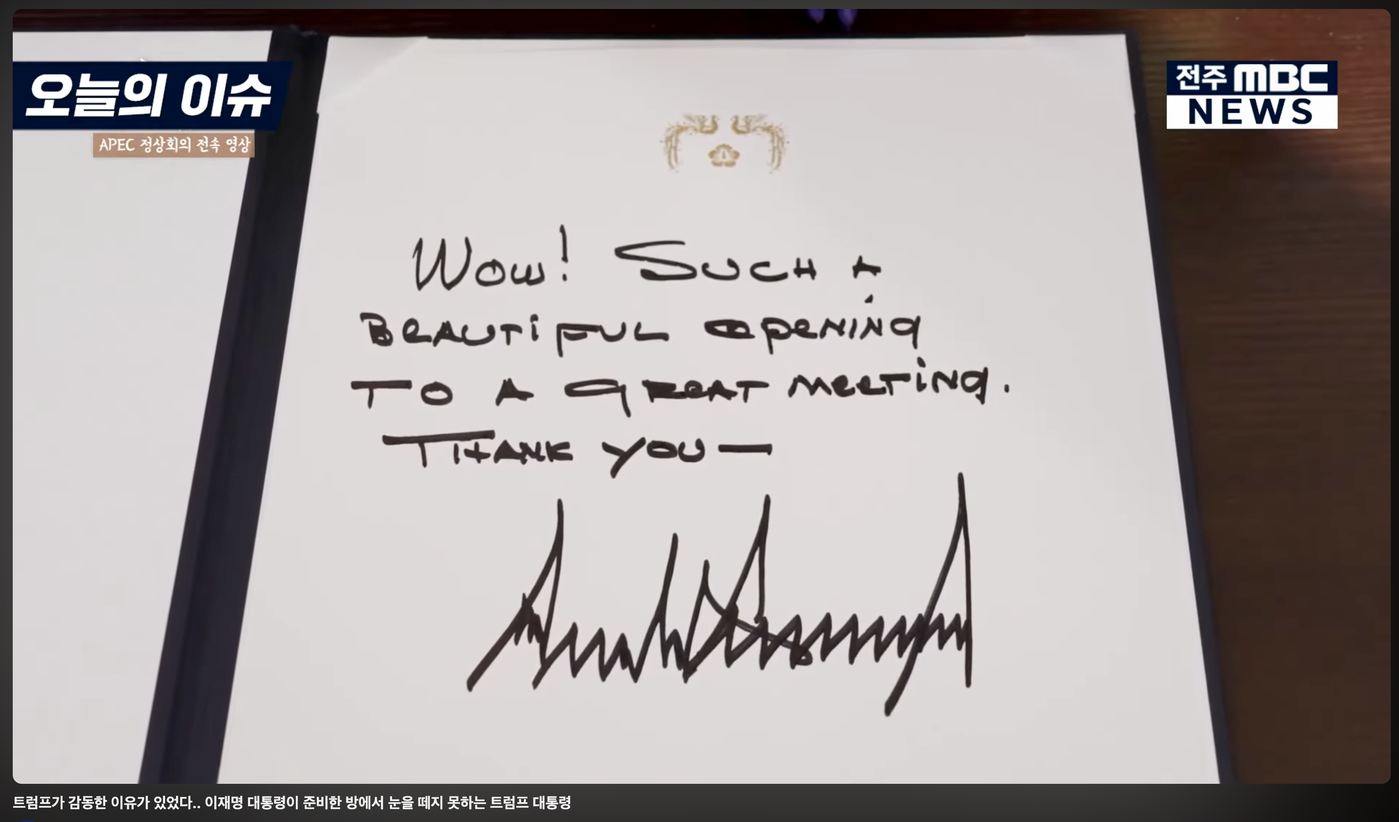 오늘의 이슈
APEC 정상회의 전속 영상
전주 MBC
NEWS
Wow! SUCH A
BEAUTIFUL OPENING
TO A GREAT MEETING.
THANK YOU —
트럼프가 감동한 이유가 있었다.. 이재명 대통령이 준비한 방에서 눈을 떼지 못하는 트럼프 대통령